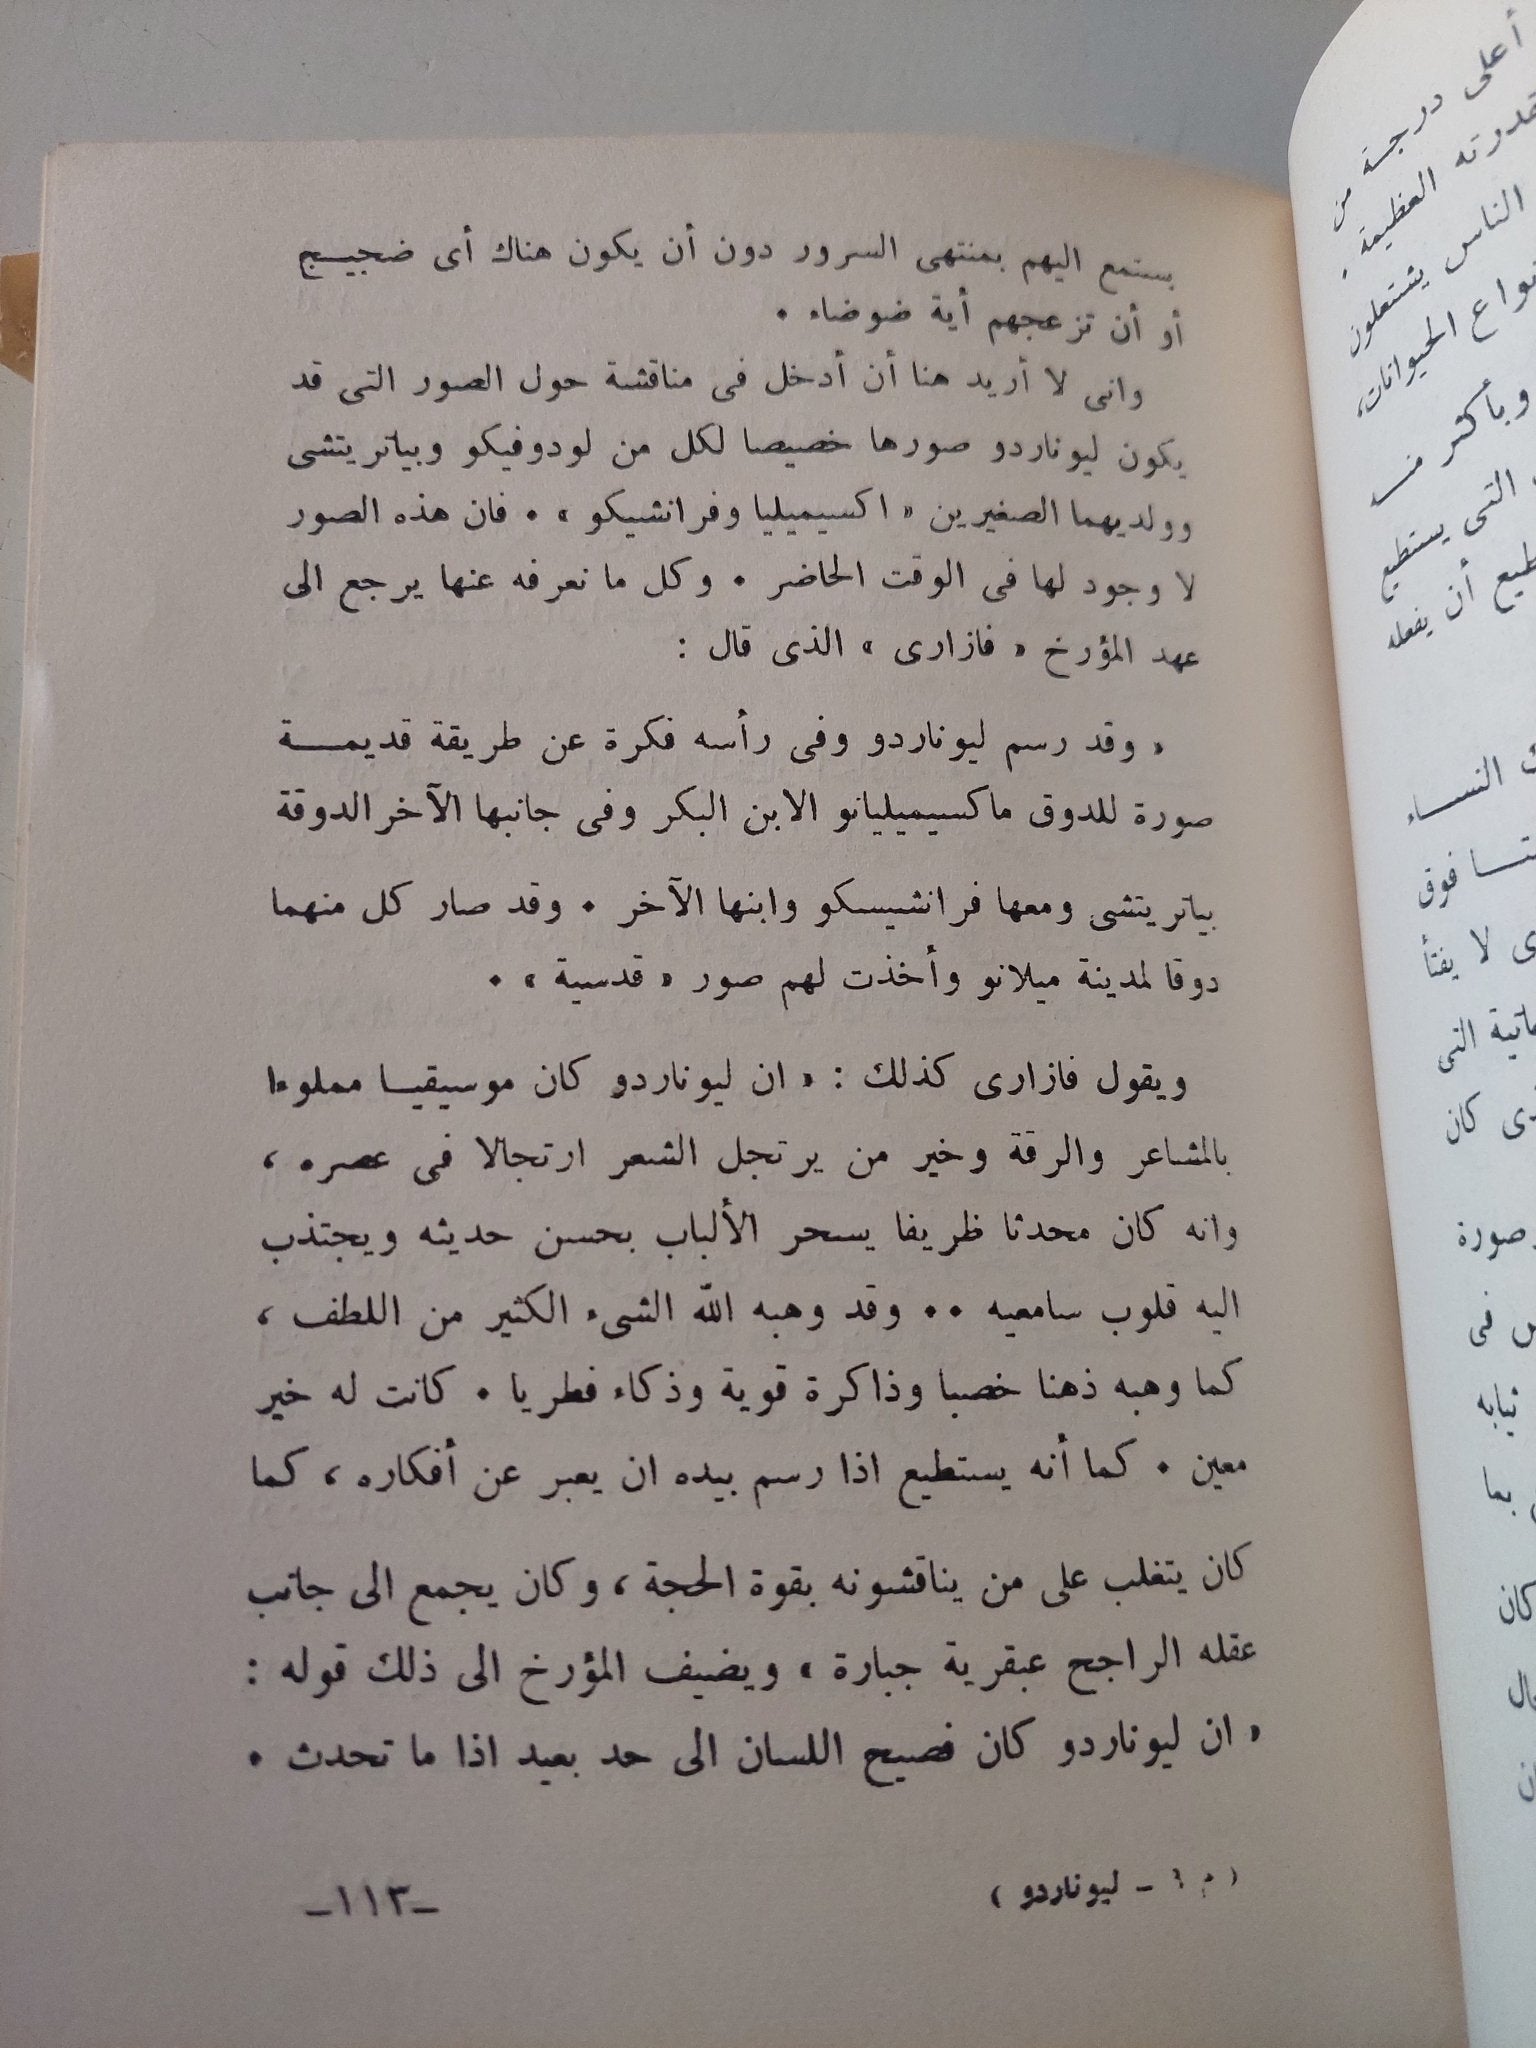 يستمع اليهم بمنتهى السرور دون أن يكون هناك أى ضجيج
أو أن تزعجهم أية ضوضاء .
وانى لا أريد هنا أن أدخل فى مناقشة حول الصور التى قد
يكون ليوناردو صورها خصيصا لكل من لودوفيكو وبياتريتشى
وولديهما الصغيرين « اكسيميليا وفرانشيكو » . فان هذه الصور
لا وجود لها فى الوقت الحاضر . وكل ما نعرفه عنها يرجع الى
عهد المؤرخ « فازارى » الذى قال :
« وقد رسم ليوناردو وفى رأسه فكرة عن طريقة قديمة
صورة للدوق ماكسيميليانو الابن البكر وفى جانبها الآخر الدوقة
بياتريتشى ومعها فرانشيسكو وابنها الآخر . وقد صار كل منهما
دوقا لمدينة ميلانو وأخذت لهم صور « قدسية » .
ويقول فازارى كذلك : « ان ليوناردو كان موسيقيا مملوءا
بالمشاعر والرقة وخير من يرتجل الشعر ارتجالا فى عصره ،
وانه كان محدثا ظريفا يسحر الألباب بحسن حديثه ويجتذب
اليه قلوب سامعيه .. وقد وهبه الله الشىء الكثير من اللطف ،
كما وهبه ذهنا خصبا وذاكرة قوية وذكاء فطريا . كانت له خير
معين . كما أنه يستطيع اذا رسم بيده ان يعبر عن أفكاره ، كما
كان يتغلب على من يناقشونه بقوة الحجة ، وكان يجمع الى جانب
عقله الراجح عبقرية جبارة ، ويضيف المؤرخ الى ذلك قوله :
« ان ليوناردو كان فصيح اللسان الى حد بعيد اذا ما تحدث .
( م ٦ - ليوناردو )
-١١٣-
أعلى درجة من
قدرته العظيمة .
الناس يشتغلون
أنواع الحيوانات،
وبأكثر منه
التى يستطيع
أن يفعله
النساء
فوق
لا يفتأ
التى
كان
صورة
فى
ثيابه
بما
كان